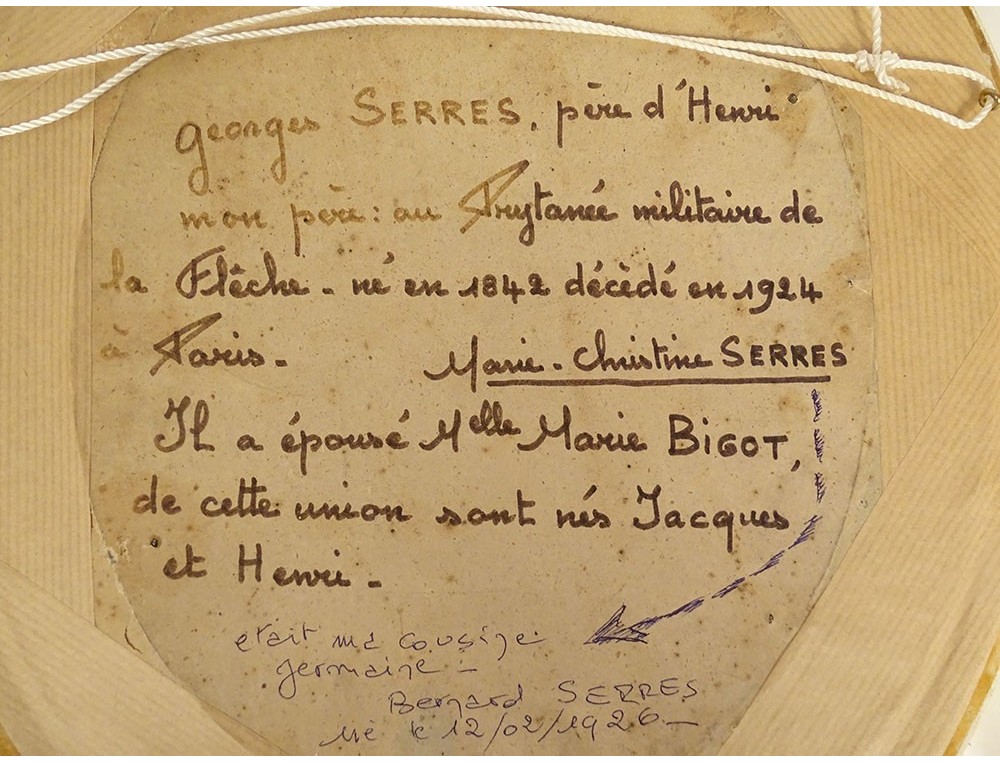 Georges SERRES, père d'Henri
mon père : au Prytanée militaire de
la Flêche - né en 1842 décèdé en 1924
à Paris - Marie-Christine SERRES
Il a épousé Melle Marie BIGOT,
de cette union sont nés Jacques
et Henri -
etait ma cousine
germaine -
Bernard SERRES
né le 12/02/1926 -